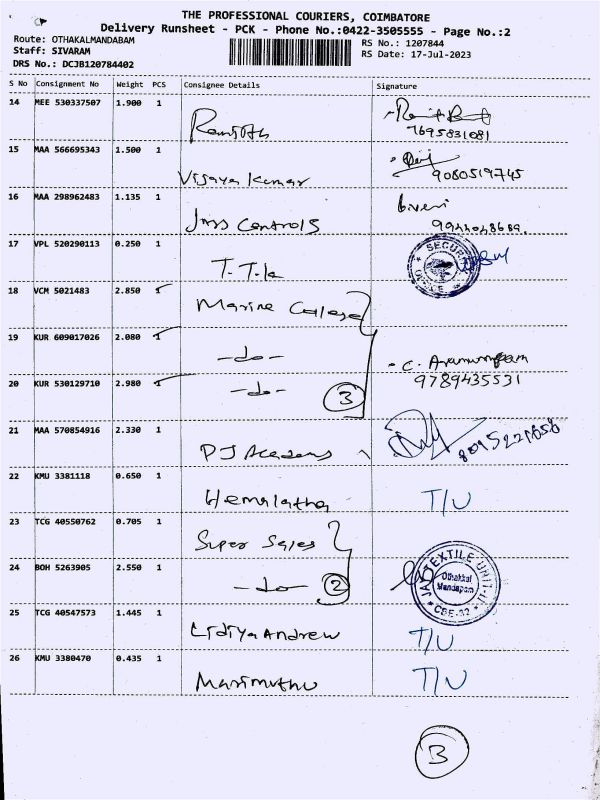 THE PROFESSIONAL COURIERS, COIMBATORE
Delivery Runsheet - PCK - Phone No.:0422-3505555 - Page No.:2
Route: OTHAKALMANDABAM
RS No.: 1207844
Staff: SIVARAM
RS Date: 17-Jul-2023
DRS No.: DCJB120784402
S No Consignment No Weight PCS Consignee Details Signature
14 MEE 530337507 1.900 1
7695831081
15 MAA 566695343 1.500 1 Vijaya Kumar
9080519745
16 MAA 298962483 1.135 1 Jass Controls
17 VPL 520290113 0.250 1 T.T.K
SECURITY OFFICE
18 VCM 5021483 2.850 1 Marine College
19 KUR 609017026 2.080 1 -do-
20 KUR 530129710 2.980 1 -do- 3
9789435531
21 MAA 570854916 2.330 1 PJ Academy
22 KMU 3381118 0.650 1 Hemalatha T/U
23 TCG 40550762 0.705 1 Super Sales
24 BOH 5263905 2.550 1 -do- 2
TEXTILE UNIT-II
Othakkal
Mandapam
CBE-32
25 TCG 40547573 1.445 1 Lidiya Andrew T/U
26 KMU 3380470 0.435 1 Marimuthu T/U
3